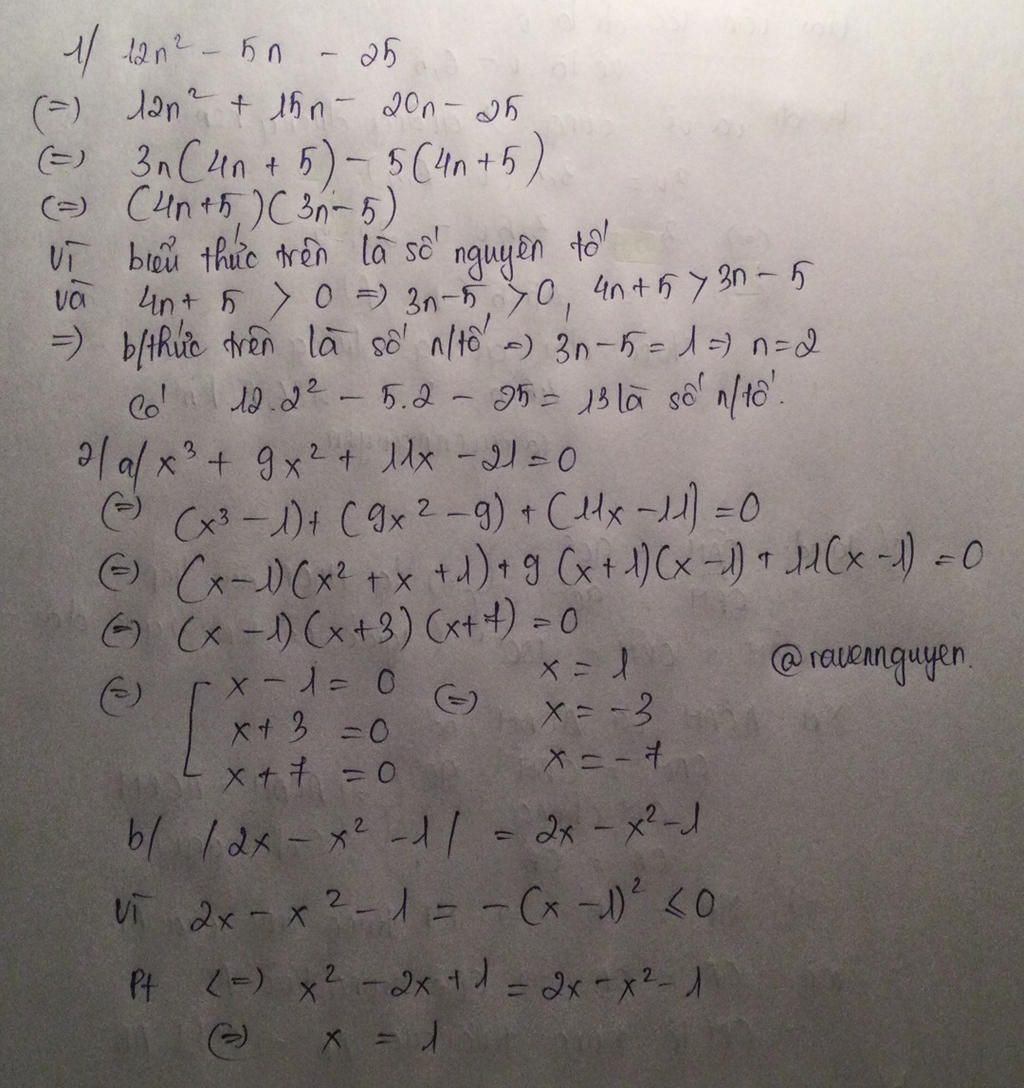 1/ 12n² - 5n - 25
(=) 12n² + 15n - 20n - 25
(=) 3n(4n + 5) - 5(4n+5)
(=) (4n+5)(3n-5)
Vì biểu thức trên là số nguyên tố
và 4n + 5 > 0 => 3n-5 > 0, 4n+5 > 3n - 5
=) b/thức trên là số n/tố => 3n-5 = 1 => n = 2
Có 12.2² - 5.2 - 25 = 13 là số n/tố.
2/ a/ x³ + 9x² + 11x - 21 = 0
(=) (x³ - 1) + (9x² - 9) + (11x - 11) = 0
(=) (x-1)(x² + x + 1) + 9(x+1)(x-1) + 11(x-1) = 0
(=) (x - 1)(x+3)(x+7) = 0
@ravennguyen.
(=) [ x - 1 = 0 (=) x = 1
x + 3 = 0 x = -3
x + 7 = 0 x = -7
b/ |2x - x² - 1| = 2x - x² - 1
Vì 2x - x² - 1 = -(x - 1)² ≤ 0
Pt (=) x² - 2x + 1 = 2x - x² - 1
(=) x = 1